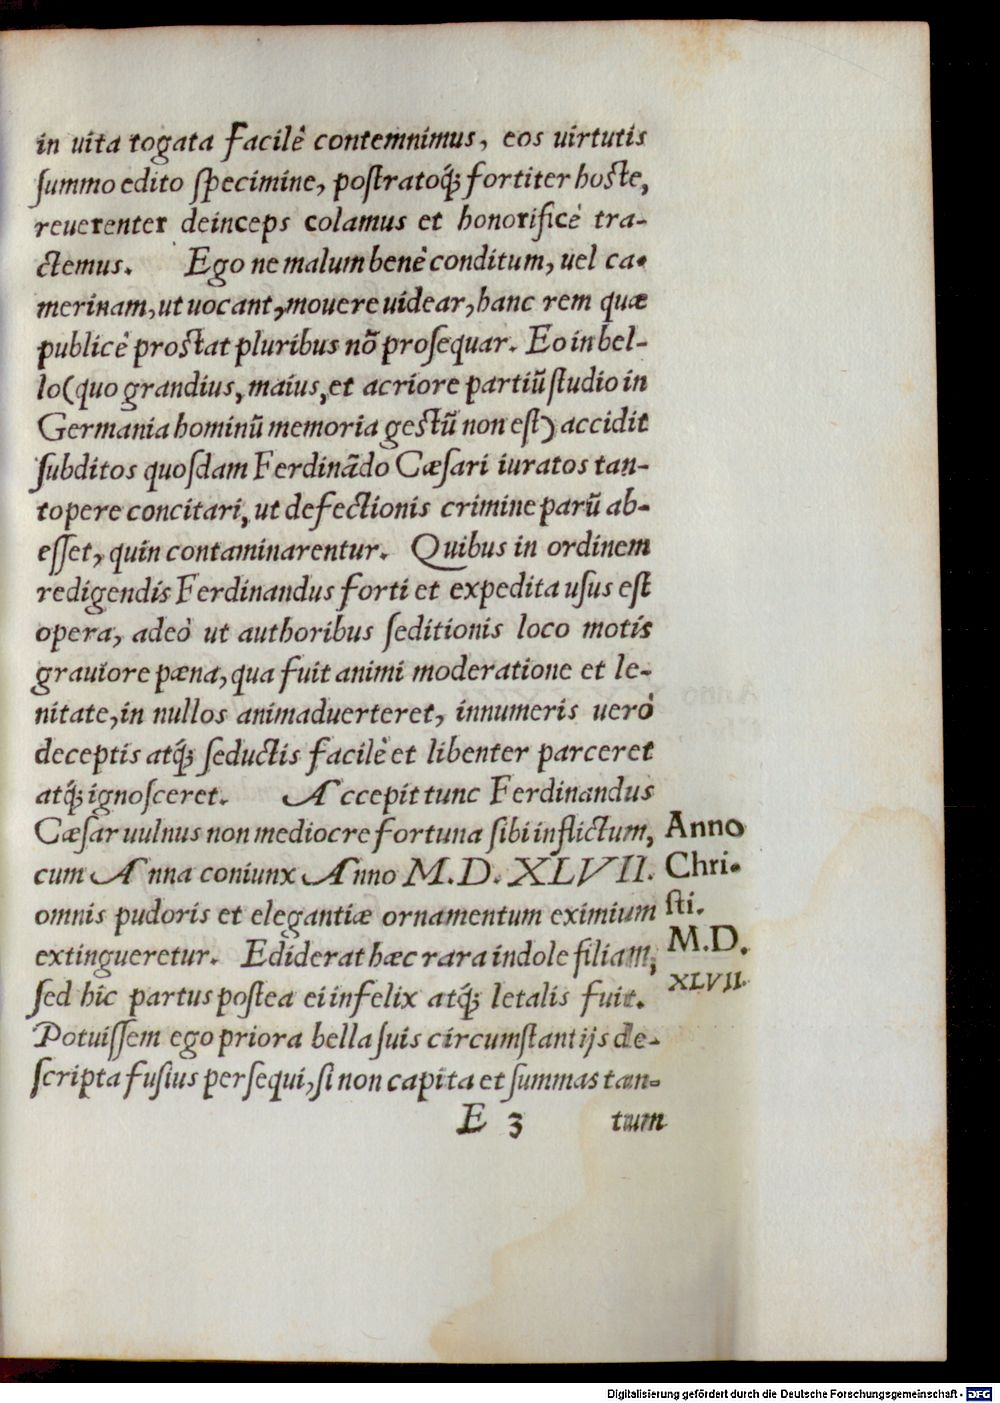 in uita togata facilè contemnimus, eos uirtutis
ſummo edito ſpecimine, poſtratoq́; fortiter hoſte,
reuerenter deinceps colamus et honorificè tra-
ctemus. Ego ne malum benè conditum, uel ca-
merinam, ut uocant, mouere uidear, hanc rem quæ
publicè proſtat pluribus nõ proſequar. Eo in bel-
lo (quo grandius, maius, et acriore partiũ ſtudio in
Germania hominũ memoria geſtũ non eſt) accidit
ſubditos quoſdam Ferdinãdo Cæſari iuratos tan-
topere concitari, ut defectionis crimine parũ ab-
eſſet, quin contaminarentur. Quibus in ordinem
redigendis Ferdinandus forti et expedita uſus eſt
opera, adeò ut authoribus ſeditionis loco motis
grauiore pæna, qua fuit animi moderatione et le-
nitate, in nullos animaduerteret, innumeris uerò
deceptis atq́; ſeductis facilè et libenter parceret
atq́; ignoſceret. Accepit tunc Ferdinandus
Cæſar uulnus non mediocre fortuna ſibi inflictum,
cum Anna coniunx Anno M.D.XLVII.
omnis pudoris et elegantiæ ornamentum eximium
extingueretur. Ediderat hæc rara indole filiam,
ſed hic partus poſtea ei infelix atq́; letalis fuit.
Potuiſſem ego priora bella ſuis circumſtantijs de-
ſcripta fuſius perſequi, ſi non capita et ſummas tan-
E 3 tum
Anno
Chri-
ſti.
M.D.
XLVII.
Digitalisierung gefördert durch die Deutsche Forschungsgemeinschaft - DFG